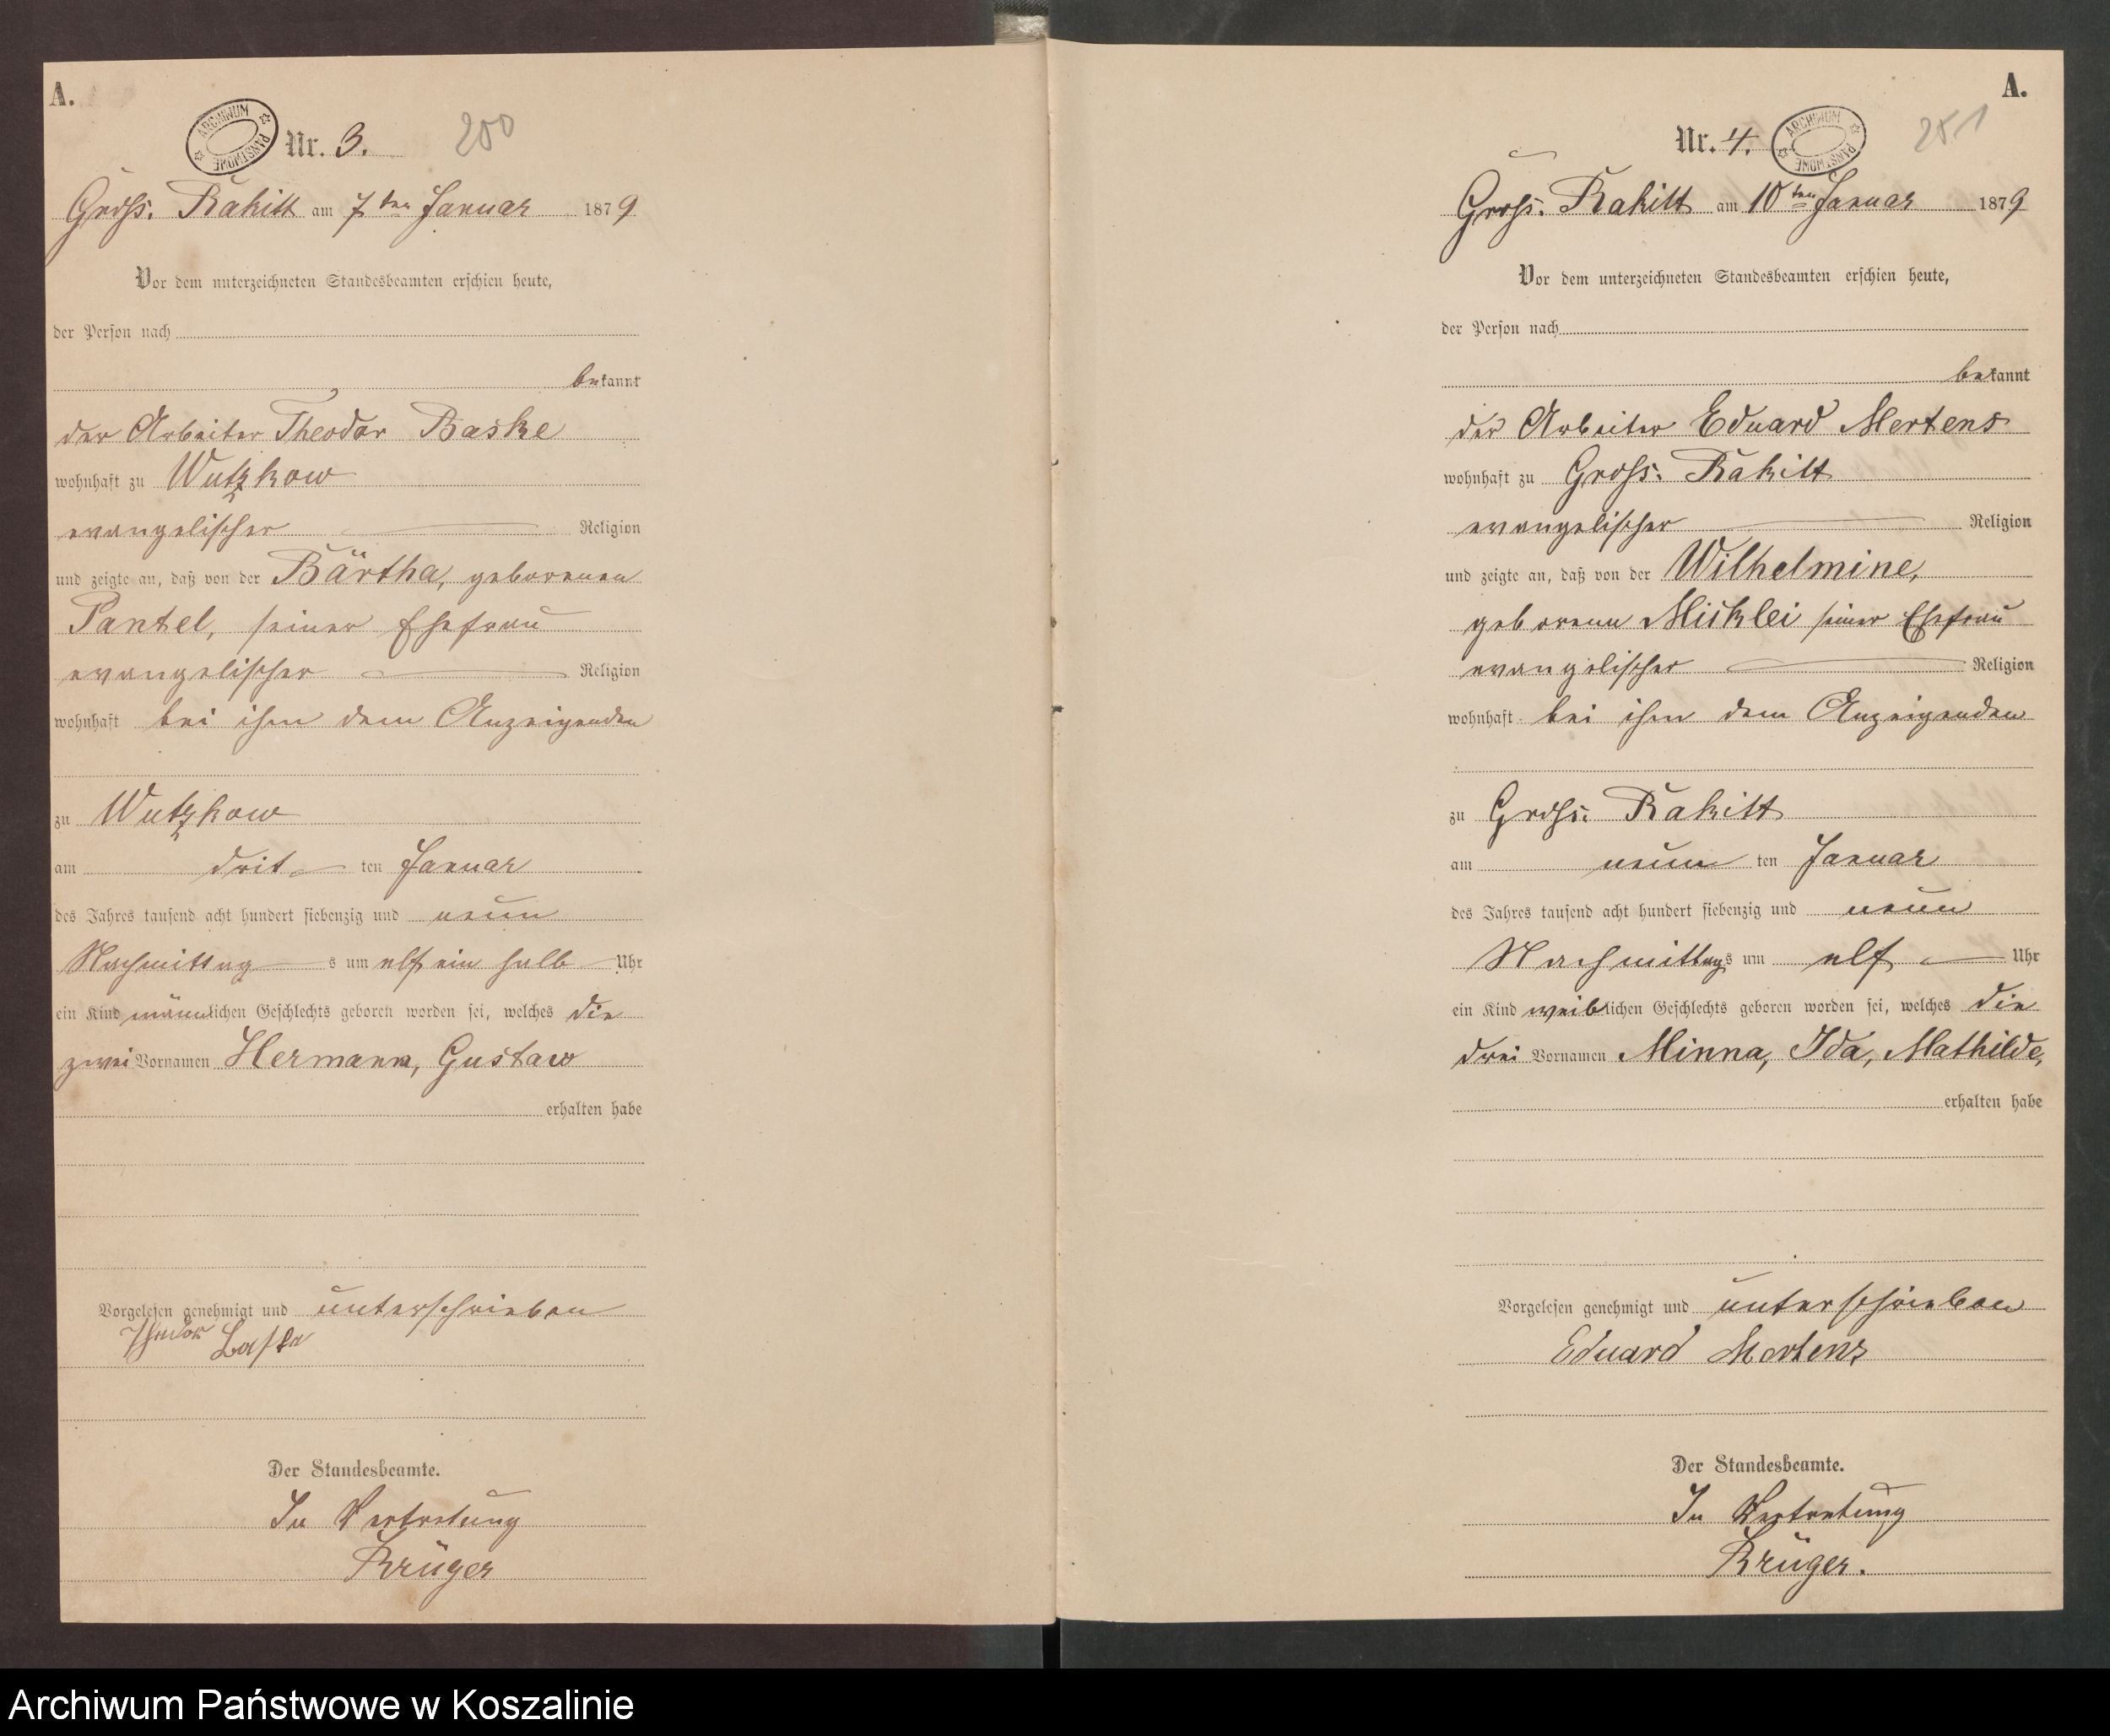 A.
ARCHIWUM PAŃSTWOWE
Nr. 3.
200
Gross. Rakitt am 7ten Januar 1879
Vor dem unterzeichneten Standesbeamten erschien heute,
der Person nach
bekannt
der Arbeiter Theodor Baske
wohnhaft zu Wutzkow
evangelischer Religion
und zeigte an, daß von der Bärtha, geborenen
Pantel, seiner Ehefrau
evangelischer Religion
wohnhaft bei ihm dem Anzeigenden
zu Wutzkow
am drit ten Januar
des Jahres tausend acht hundert siebenzig und neun
Nachmittag s um elf ein halb Uhr
ein Kind männlichen Geschlechts geboren worden sei, welches die
zwei Vornamen Hermann, Gustaw
erhalten habe
Vorgelesen genehmigt und unterschrieben
Theodor Baske
Der Standesbeamte.
In Vertretung
Krüger
A.
Nr. 4.
ARCHIWUM PAŃSTWOWE
251
Gross. Rakitt am 10ten Januar 1879
Vor dem unterzeichneten Standesbeamten erschien heute,
der Person nach
bekannt
der Arbeiter Eduard Mertens
wohnhaft zu Gross. Rakitt
evangelischer Religion
und zeigte an, daß von der Wilhelmine,
geborene seiner Ehefrau
evangelischer Religion
wohnhaft bei ihm dem Anzeigenden
zu Gross. Rakitt
am neun ten Januar
des Jahres tausend acht hundert siebenzig und neun
Nachmittags um elf Uhr
ein Kind weiblichen Geschlechts geboren worden sei, welches die
drei Vornamen Minna, Ida, Mathilde,
erhalten habe
Vorgelesen genehmigt und unterschrieben
Eduard Mertens
Der Standesbeamte.
In Vertretung
Krüger.
Archiwum Państwowe w Koszalinie